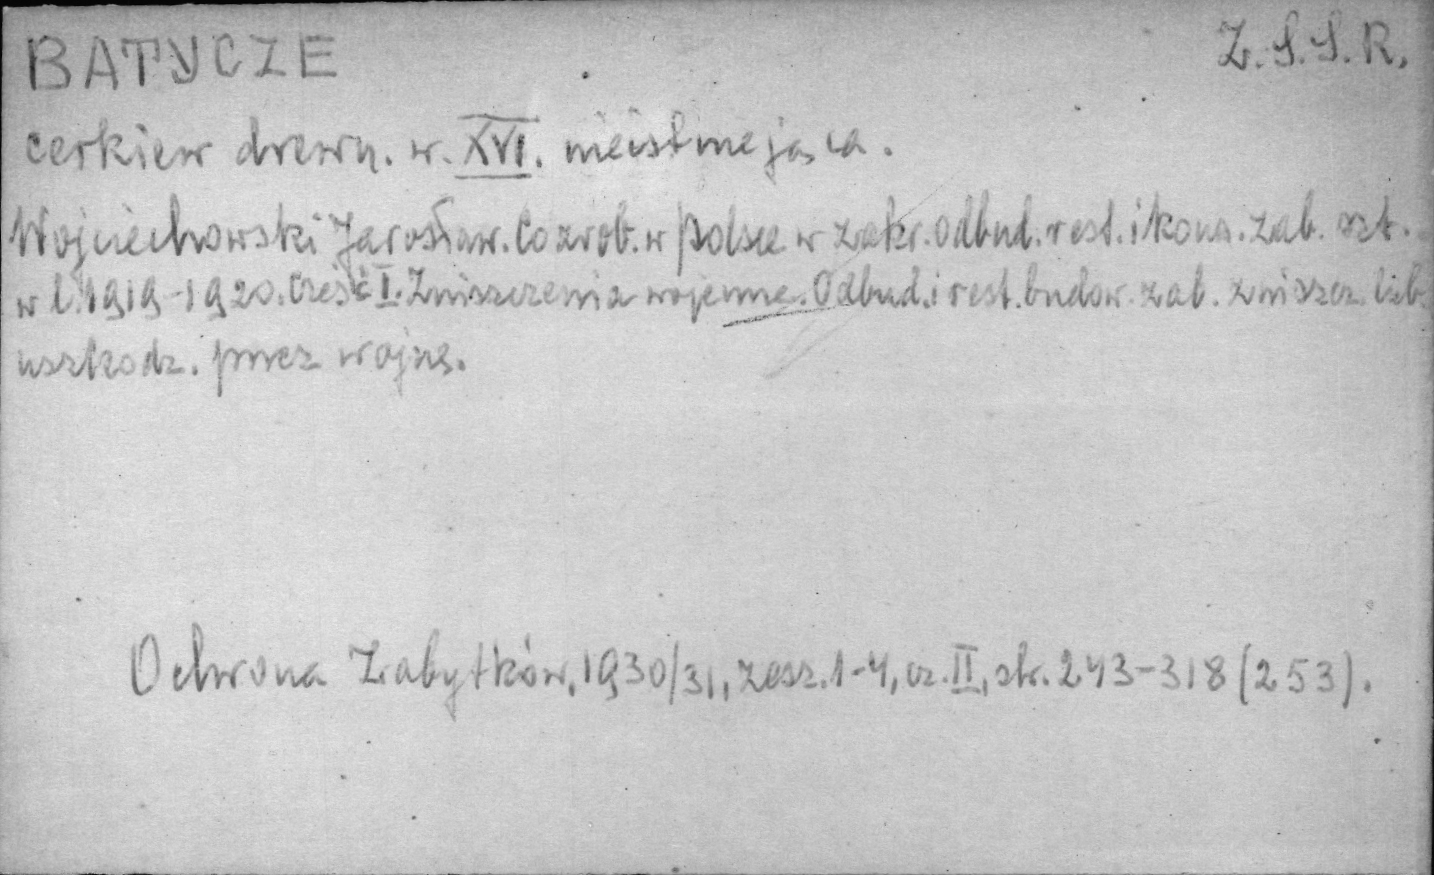 BATYCZE Z.S.S.R.
cerkiew drewn. w. XVI. nieistniejąca.
Wojciechowski Jarosław. Co zrob. w Polsce w zakr. odbud. rest. i kons. zab. szt.
w l. 1919-1920. Część I. Zniszczenia wojenne. Odbud. i rest. budow. zab. zniszcz. lub
uszkodz. przez wojnę.
Ochrona Zabytków, 1930/31, zesz. 1-4, cz. II, str. 243-318 (253).